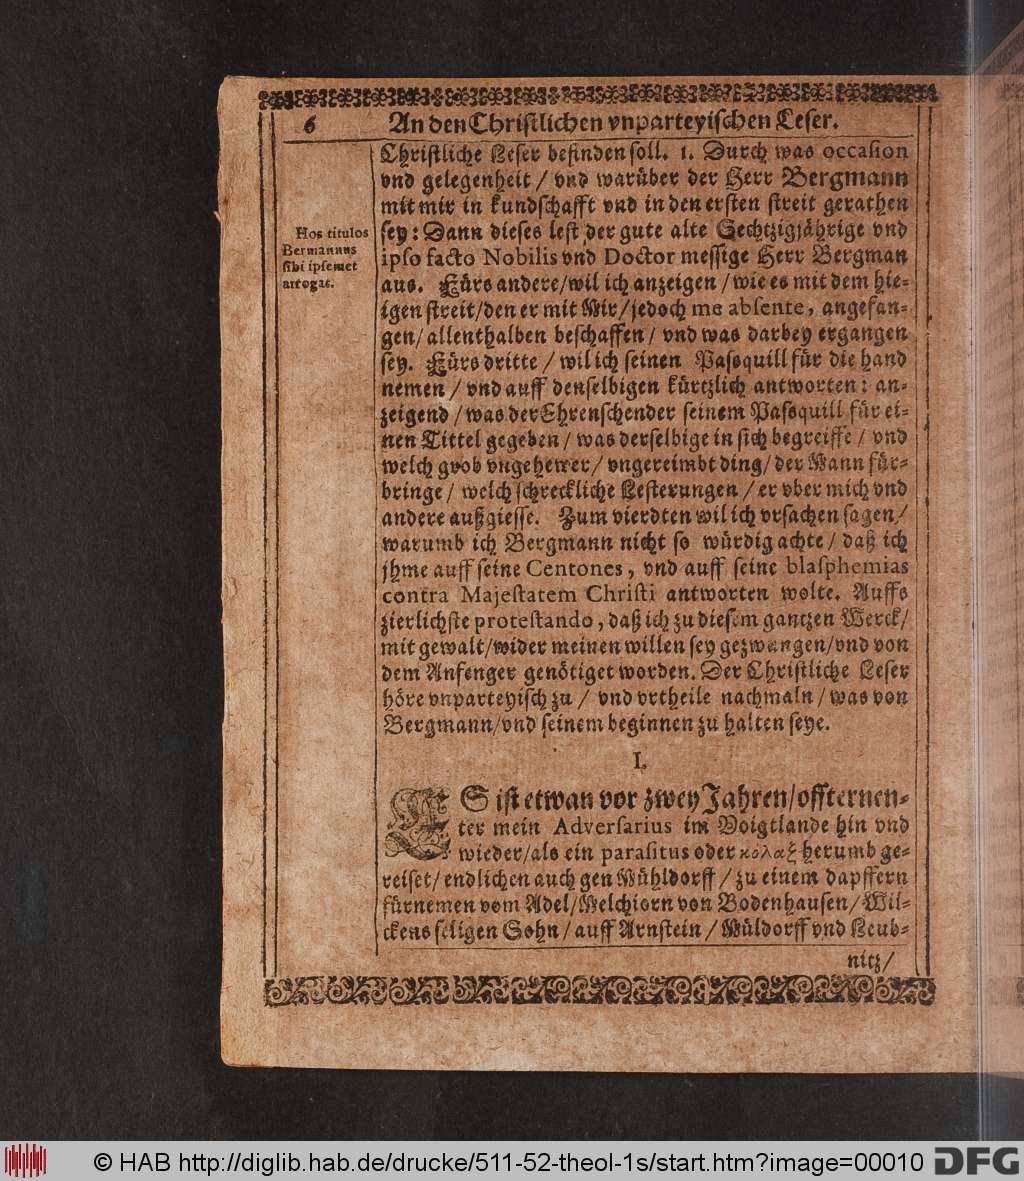 6 An den Christlichen vnparteyischen Leser.
Christliche Leser befinden soll. 1. Durch was occasion
vnd gelegenheit / vnd warüber der Herr Bergmann
mit mir in kundschafft vnd in den ersten streit gerathen
sey: Dann dieses lest der gute alte Sechtzigjährige vnd
ipso facto Nobilis vnd Doctor messige Herr Bergman
aus. Fürs andere/wil ich anzeigen / wie es mit dem hie-
igen streit/den er mit Mir/jedoch me absente, angefan-
gen/ allenthalben beschaffen / vnd was darbey ergangen
sey. Fürs dritte / wil ich seinen Pasquill für die hand
nemen / vnd auff denselbigen kürtzlich antworten: an-
zeigend / was der Ehrenschender seinem Pasquill für ei-
nen Tittel gegeben / was derselbige in sich begreiffe / vnd
welch grob vngehewer/ vngereimbt ding/ der Mann für-
bringe / welch schreckliche Lesterungen / er vber mich vnd
andere außgiesse. Zum vierdten wil ich vrsachen sagen/
warumb ich Bergmann nicht so würdig achte / daß ich
jhme auff seine Centones, vnd auff seine blasphemias
contra Majestatem Christi antworten wolte. Auffs
zierlichste protestando, daß ich zu diesem gantzen Werck/
mit gewalt/wider meinen willen sey gezwungen/vnd von
dem Anfenger genötiget worden. Der Christliche Leser
höre vnparteyisch zu / vnd vrtheile nachmaln / was von
Bergmann/vnd seinem beginnen zu halten seye.
Hos titulos
Bermannus
sibi ipsemet
arrogat.
I.
ES ist etwan vor zwey Jahren/offternen-
ter mein Adversarius im Voigtlande hin vnd
wieder/als ein parasitus oder κολαξ herumb ge-
reiset/ endlichen auch gen Mühldorff / zu einem dapffern
fürnemen vom Adel/Melchiorn von Bodenhausen/ Wil-
ckens seligen Sohn / auff Arnstein / Müldorff vnd Leub-
nitz/
© HAB http://diglib.hab.de/drucke/511-52-theol-1s/start.htm?image=00010
DFG